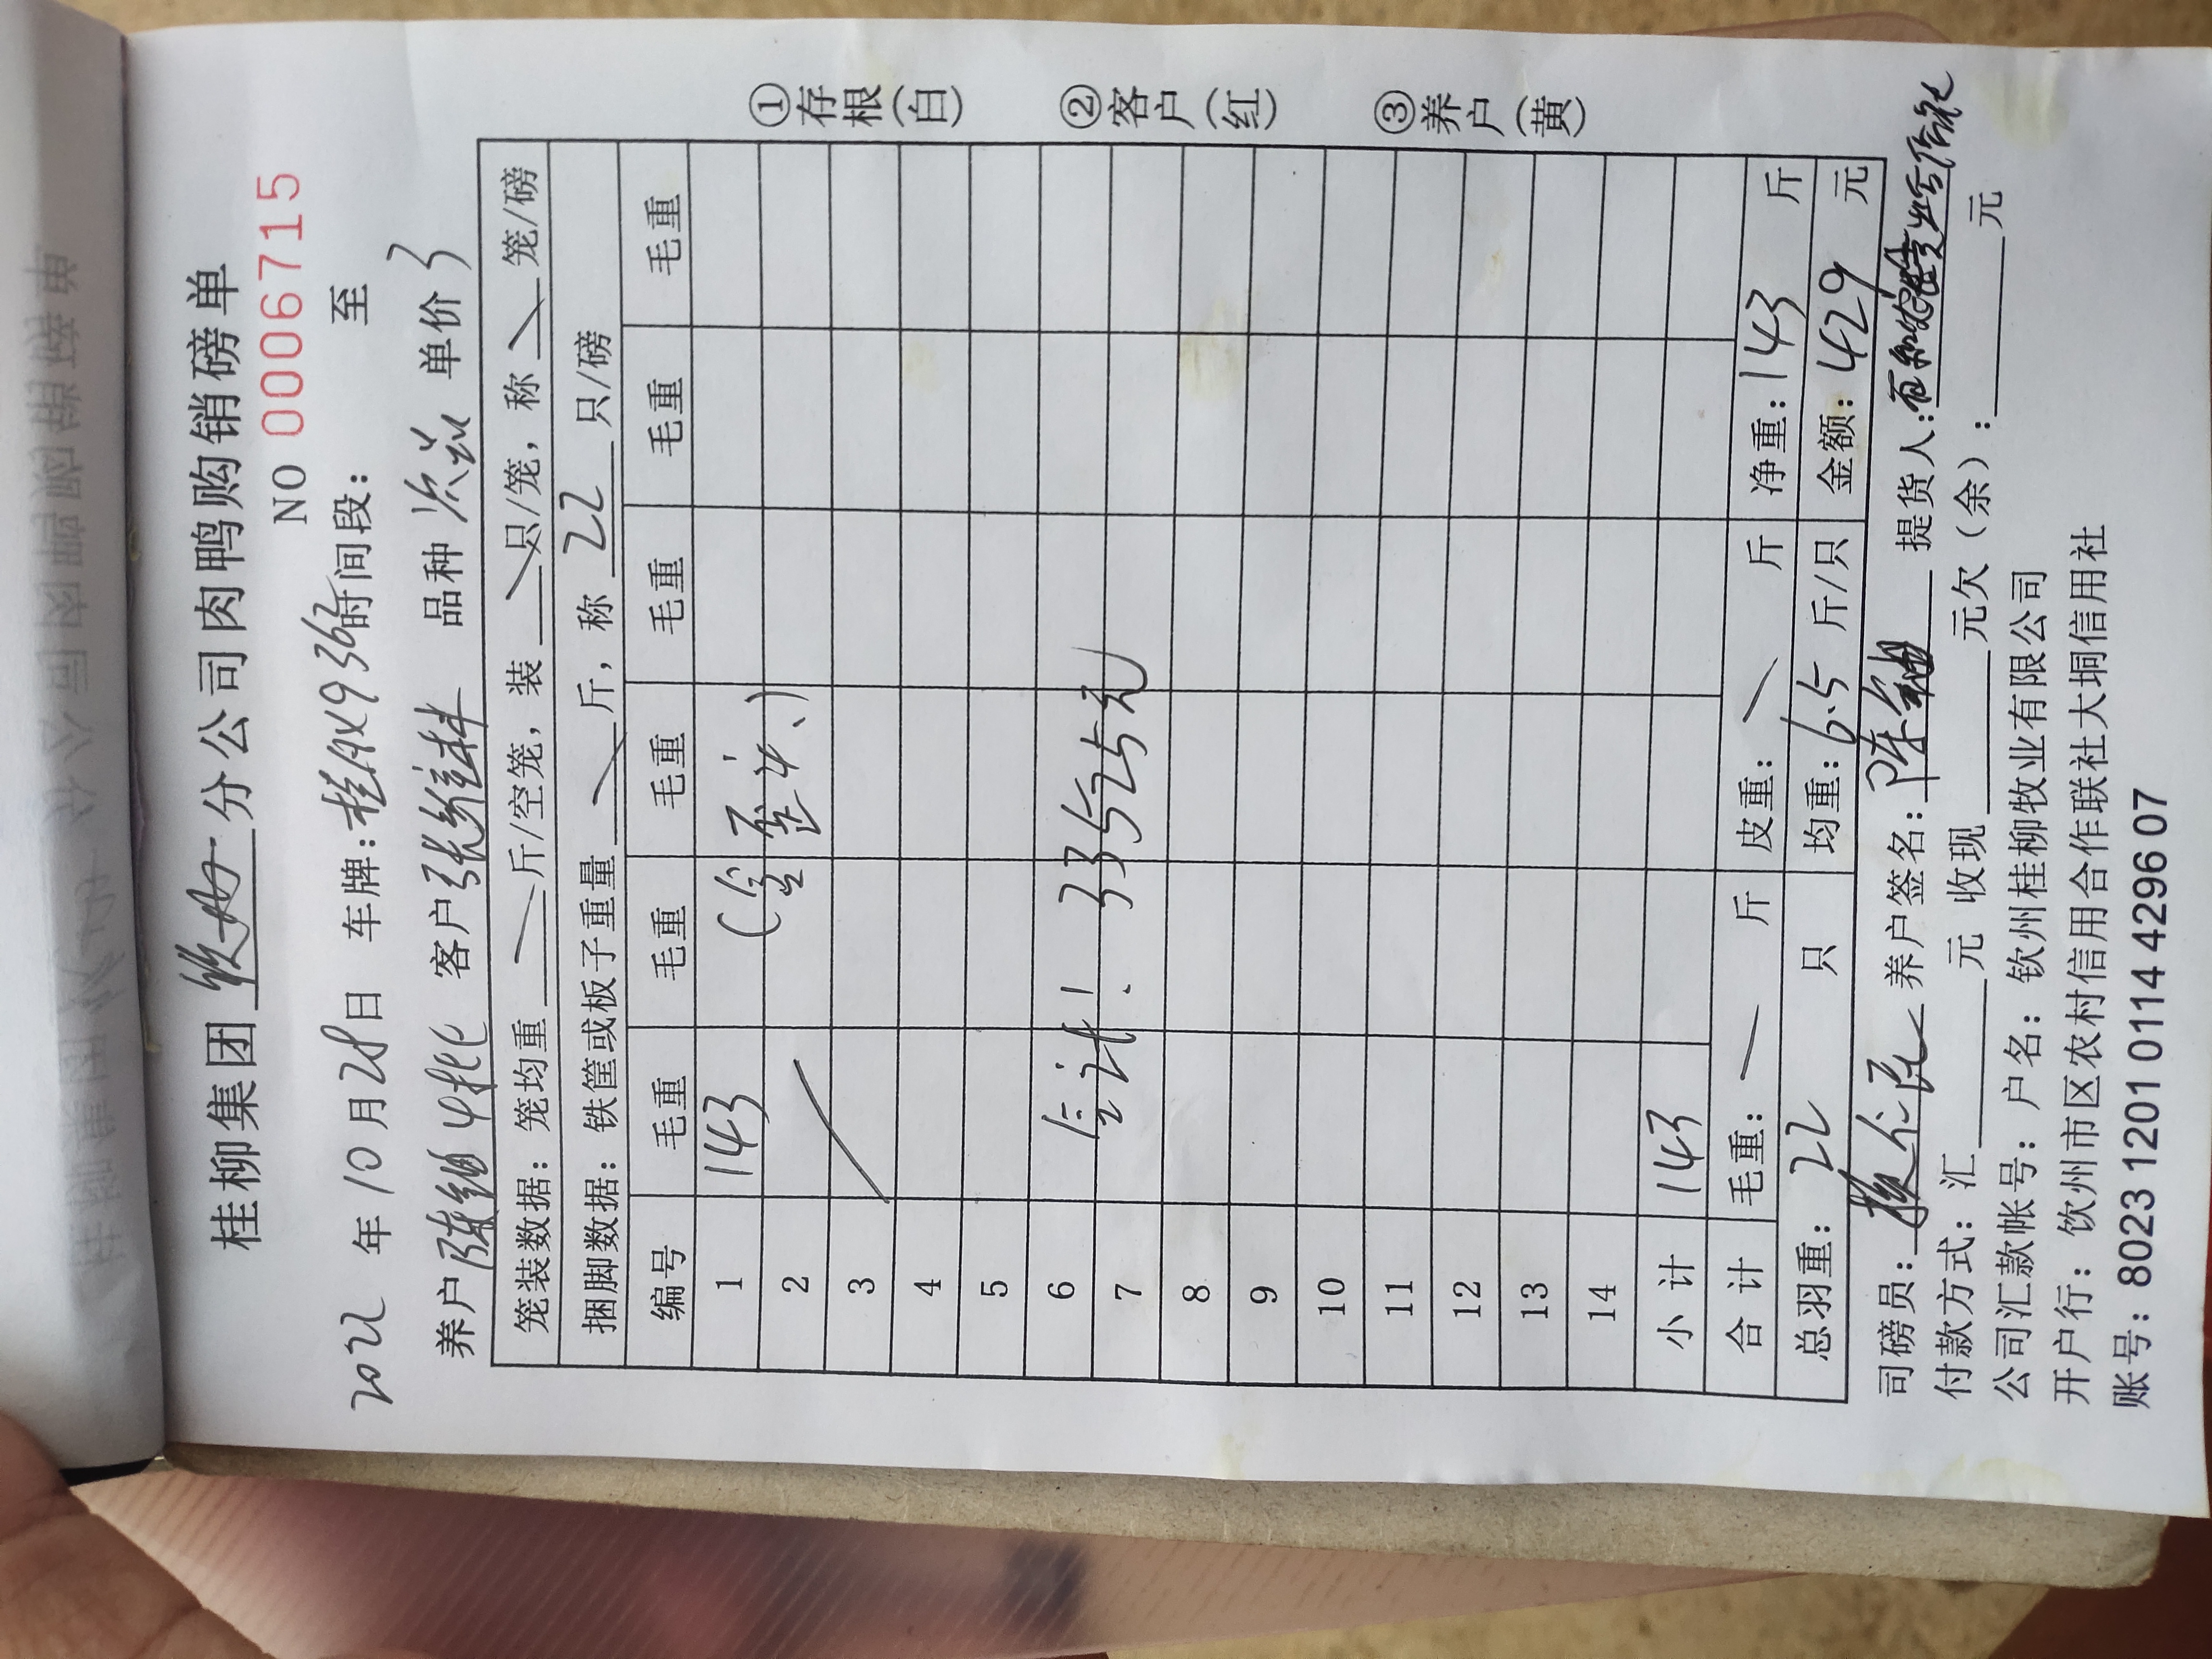 桂柳集团 分公司肉鸭购销磅单
NO 0006715
2022 年 10 月 28 日 车牌: 936 时间段: 至
养户 陈 客户 张 品种 次 单价 3
笼装数据: 笼均重 斤/空笼, 装 只/笼, 称 笼/磅
捆脚数据: 铁筐或板子重量 斤, 称 22 只/磅
编号 毛重 毛重 毛重 毛重 毛重 毛重
1 143
2
3
4
5
6 合计: 3525元
7
8
9
10
11
12
13
14
小计 143
合计 毛重: 斤 皮重: 斤 净重: 143 斤
总羽重: 22 只 均重: 6.5 斤/只 金额: 429 元
司磅员: 养户签名: 陈 提货人:
付款方式: 汇 元 收现 元欠(余): 元
公司汇款帐号: 户名: 钦州桂柳牧业有限公司
开户行: 钦州市区农村信用合作联社大垌信用社
账号: 8023 1201 0114 4296 07
①存根(白)
②客户(红)
③养户(黄)